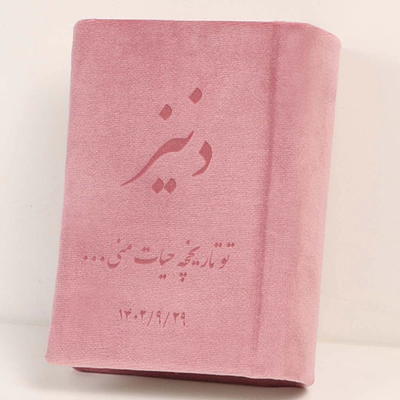 دنیز
تو تاریخچه حیات منی...
۱۴۰۲/۹/۲۹